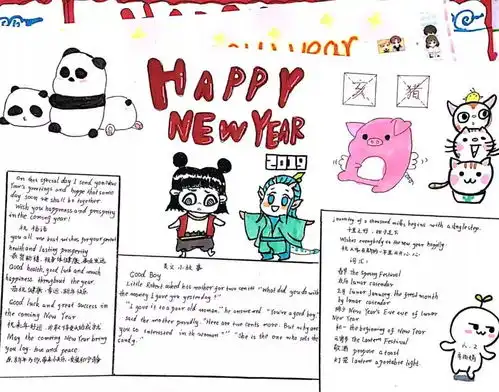 our year
HAPPY
NEW YEAR
2019
亥 猪
On this special day I send you New
Year's greetings and hope that some
day soon we shall be together.
Wish you happiness and prosperity
in the coming year!
祝福语
you all our best wishes for your
health and lasting prosperity.
恭贺新禧
Good health, good luck and much
happiness throughout the year.
Good luck and great success in
the coming New Year
May the coming New Year bring
you joy, love and peace
英文小故事
Good Boy
Little Robert asked his mother for two cents. "What did you do with
the money I gave you yesterday?"
"I gave it to a poor old woman," he answered. "You're a good boy,"
said the mother proudly. "Here are two cents more. But why are
you so interested in the woman?" "She is the one who sells the
candy."
journey of a thousand miles, begins with a single step.
千里之行,始于足下
Wishes everybody in the new year happily.
词汇:
春节 the Spring Festival
农历 lunar calendar
正月 lunar January; the first month
by lunar
除夕 New Year's Eve; eve of lunar
New Year
初一 the beginning of New Year
元宵节 the Lantern Festival
敬酒 propose a toast
灯笼 lantern: a portable light